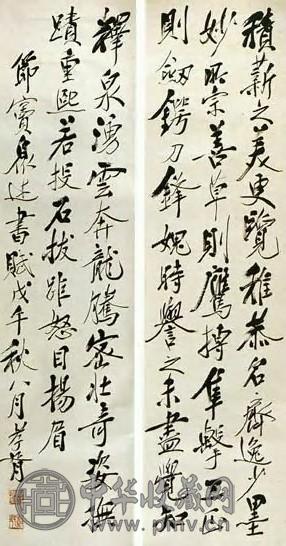 積薪之美更覽稚恭名齊逸少墨
妙所宗善草則鷹搏隼擊工正
則劍鍔刀鋒愧時譽之未盡覺知
釋泉湧雲奔龍騰密壯奇姿撫
蹟重熙若投石拔距怒目揚眉
節竇臮述書賦戊午秋八月孝胥
中华收藏网